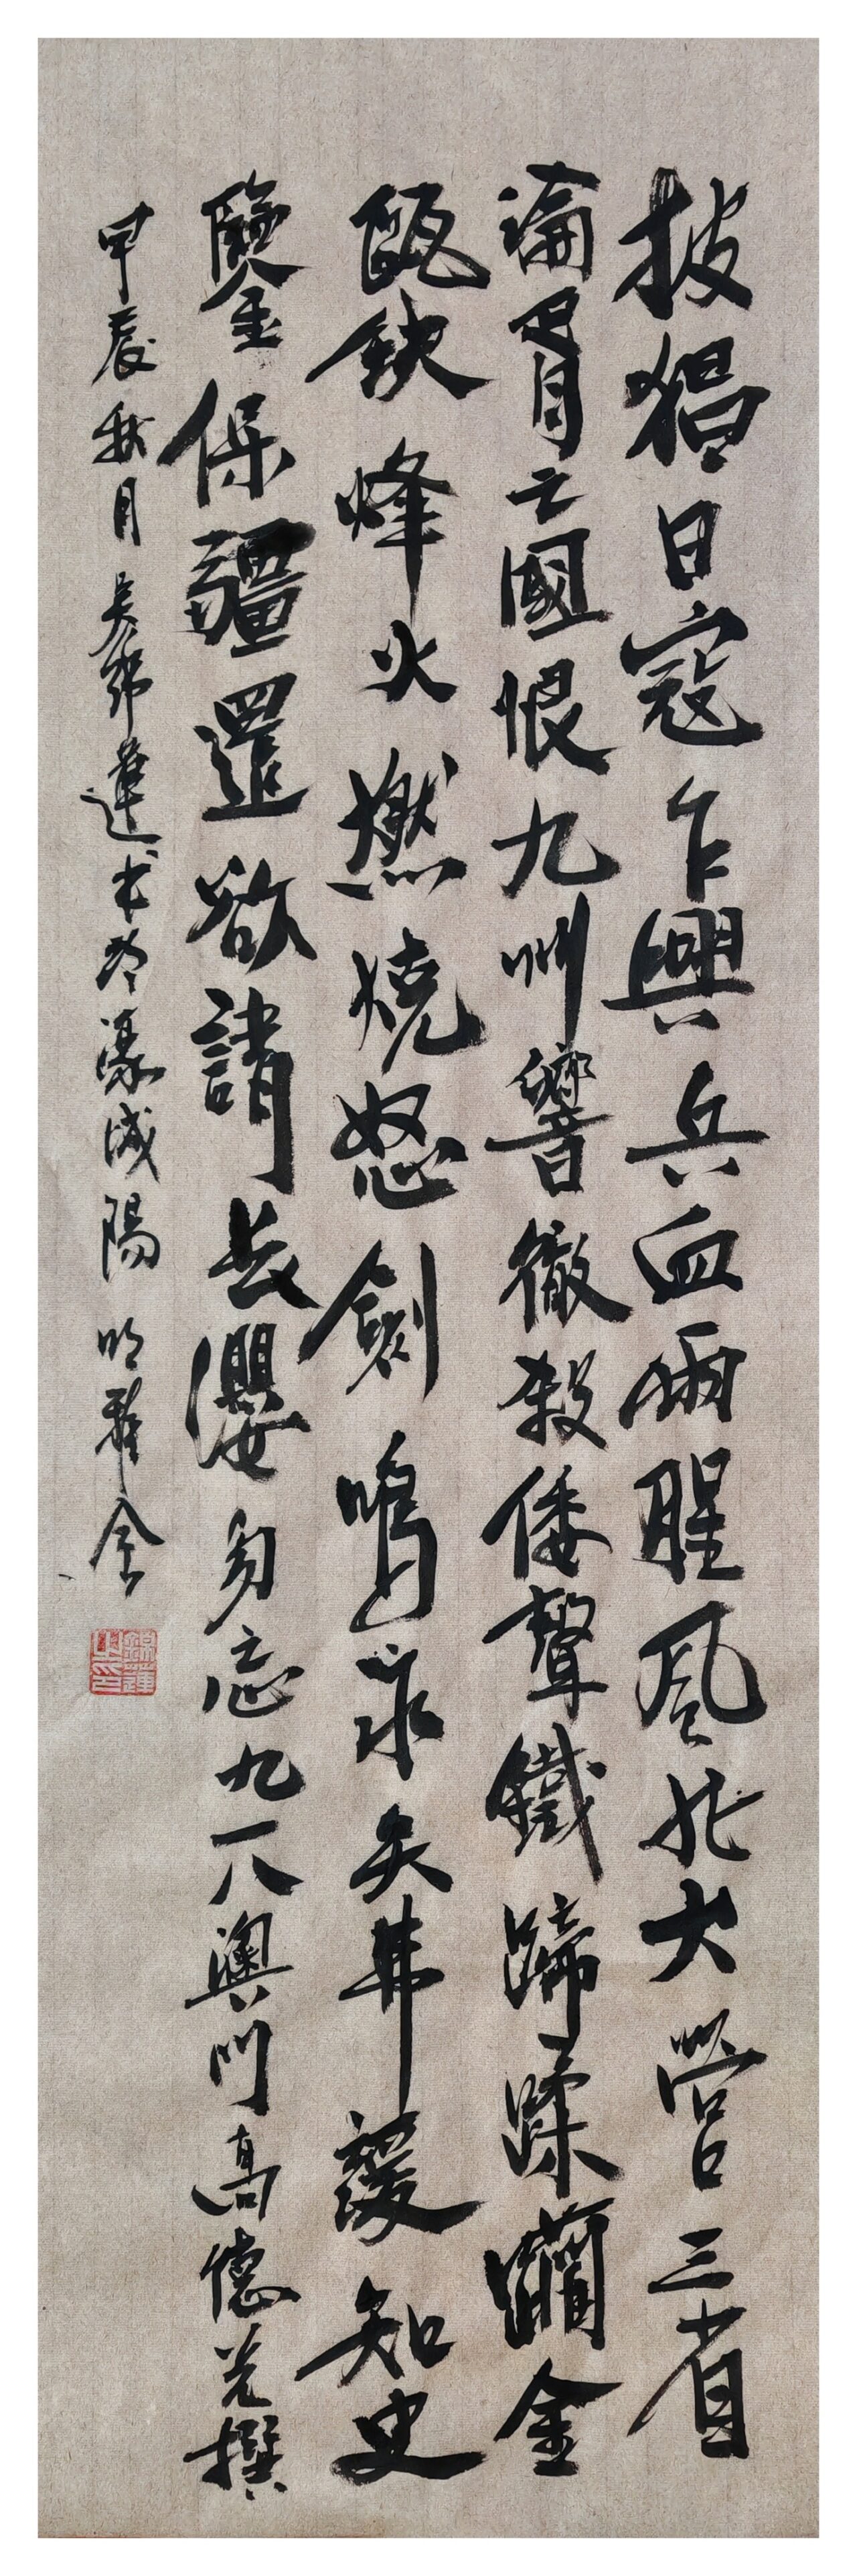 披猖日寇乍興兵血雨腥風北大營三省
淪胥亡國恨九州響徹殺倭聲鐵蹄蹂躪金
甌缺烽火燃燒怒劍鳴永矢弗諼知史
鑒保疆還欲請長纓勿忘九一八澳門高德光撰
甲辰秋月吳鄉蓮書於濠城陽明雅舍
錦蓮之印